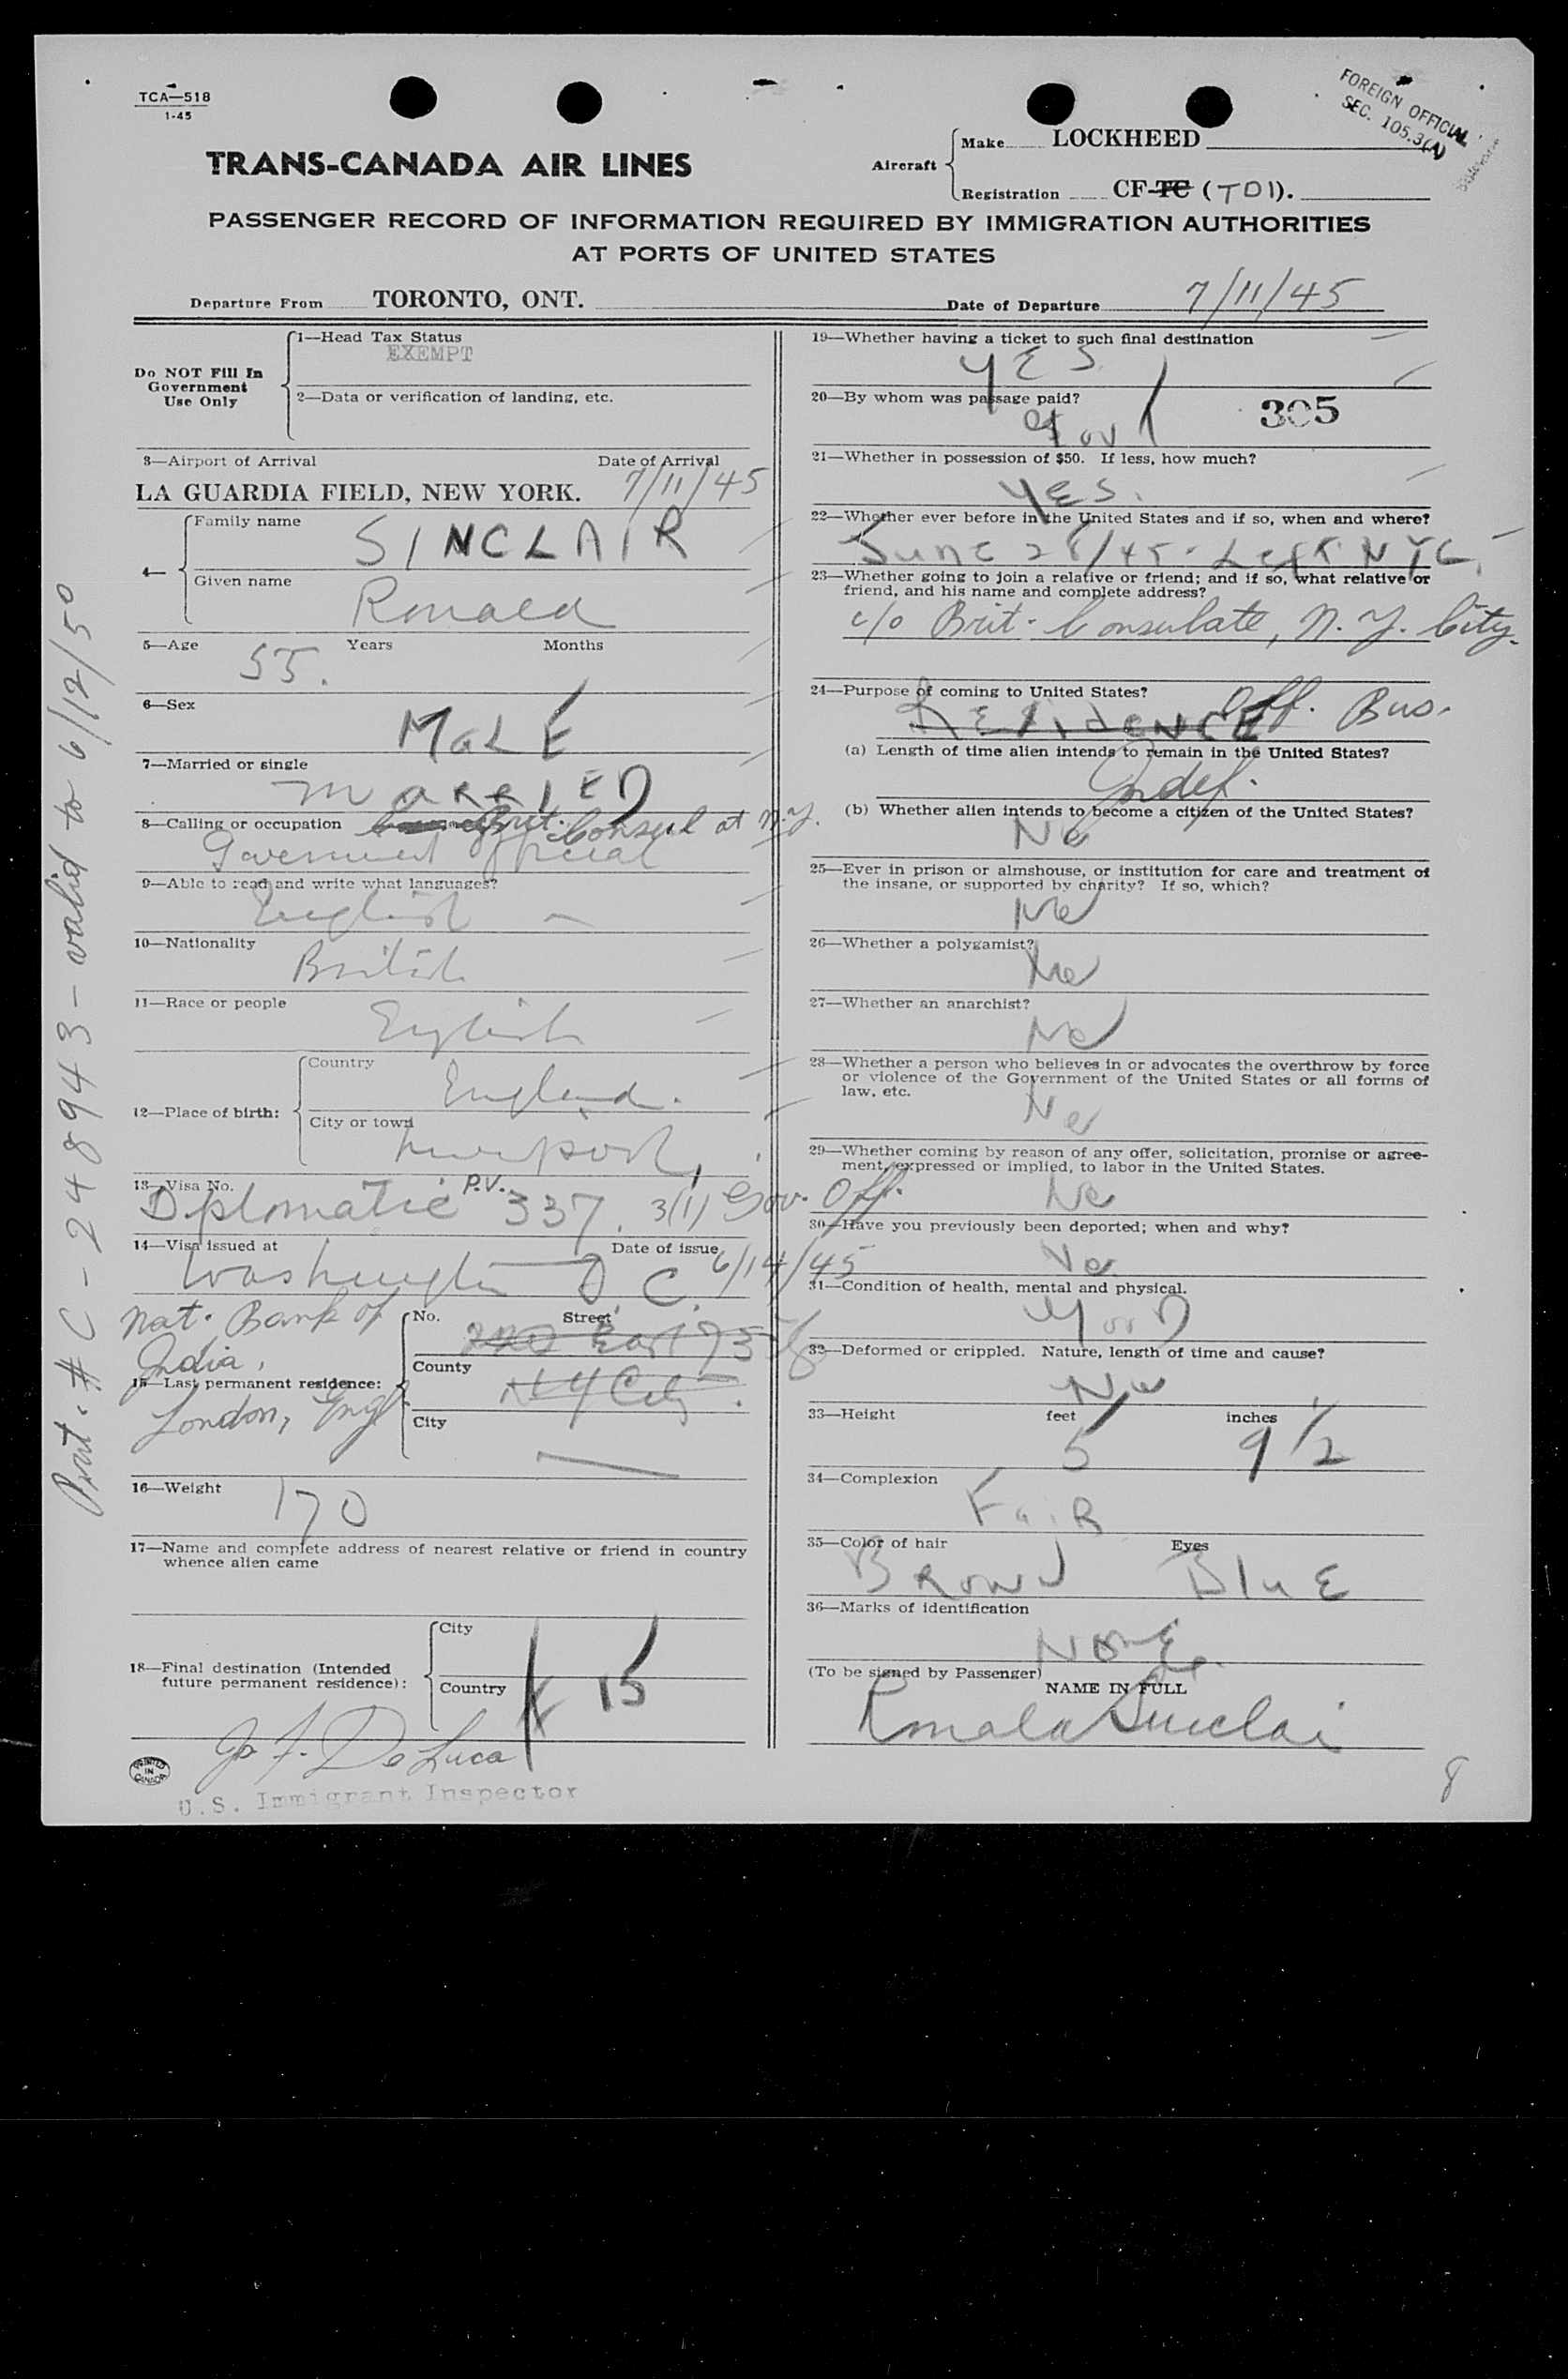 TCA—518
1-45
FOREIGN OFFICIAL
SEC. 105.3(A)
TRANS-CANADA AIR LINES
Aircraft
Make LOCKHEED
Registration CF-TC (TDI).
PASSENGER RECORD OF INFORMATION REQUIRED BY IMMIGRATION AUTHORITIES
AT PORTS OF UNITED STATES
Departure From TORONTO, ONT. Date of Departure 7/11/45
Do NOT Fill In
Government
Use Only
1—Head Tax Status
EXEMPT
2—Data or verification of landing, etc.
3—Airport of Arrival Date of Arrival
LA GUARDIA FIELD, NEW YORK. 7/11/45
4—
Family name
SINCLAIR
Given name
Ronald
5—Age Years Months
55.
6—Sex
MALE
7—Married or single
MARRIED
8—Calling or occupation Brit. Consul at N.Y.
Government Official
9—Able to read and write what languages?
English
10—Nationality
British
11—Race or people
English
12—Place of birth:
Country
England.
City or town
Liverpool,
13—Visa No.
Diplomatic P.V. 337. 3(1) Gov. Off.
14—Visa issued at Date of issue
Washington D.C. 6/14/45
Nat. Bank of
India,
15—Last permanent residence:
London, Engl.
No. Street
East 75
County
NY City.
City
16—Weight
170
17—Name and complete address of nearest relative or friend in country
whence alien came
18—Final destination (Intended
future permanent residence):
City
Country
15
Jo. F. De Luca
U.S. Immigrant Inspector
PRINTED
IN
CANADA
# C-248943 - valid to 6/12/50
19—Whether having a ticket to such final destination
YES
20—By whom was passage paid?
Gov
305
21—Whether in possession of $50. If less, how much?
YES.
22—Whether ever before in the United States and if so, when and where?
June 28/45 - Left NYC.
23—Whether going to join a relative or friend; and if so, what relative or
friend, and his name and complete address?
c/o Brit. Consulate, N.Y. City.
24—Purpose of coming to United States?
RESIDENCE Off. Bus.
(a) Length of time alien intends to remain in the United States?
Indef.
(b) Whether alien intends to become a citizen of the United States?
No
25—Ever in prison or almshouse, or institution for care and treatment of
the insane, or supported by charity? If so, which?
No
26—Whether a polygamist?
No
27—Whether an anarchist?
No
28—Whether a person who believes in or advocates the overthrow by force
or violence of the Government of the United States or all forms of
law, etc.
No
29—Whether coming by reason of any offer, solicitation, promise or agree-
ment, expressed or implied, to labor in the United States.
No
30—Have you previously been deported; when and why?
No
31—Condition of health, mental and physical.
Good
32—Deformed or crippled. Nature, length of time and cause?
No
33—Height feet inches
5 9 1/2
34—Complexion
FAIR
35—Color of hair Eyes
BROWN BLUE
36—Marks of identification
NONE
(To be signed by Passenger)
NAME IN FULL
Ronald Sinclair
8